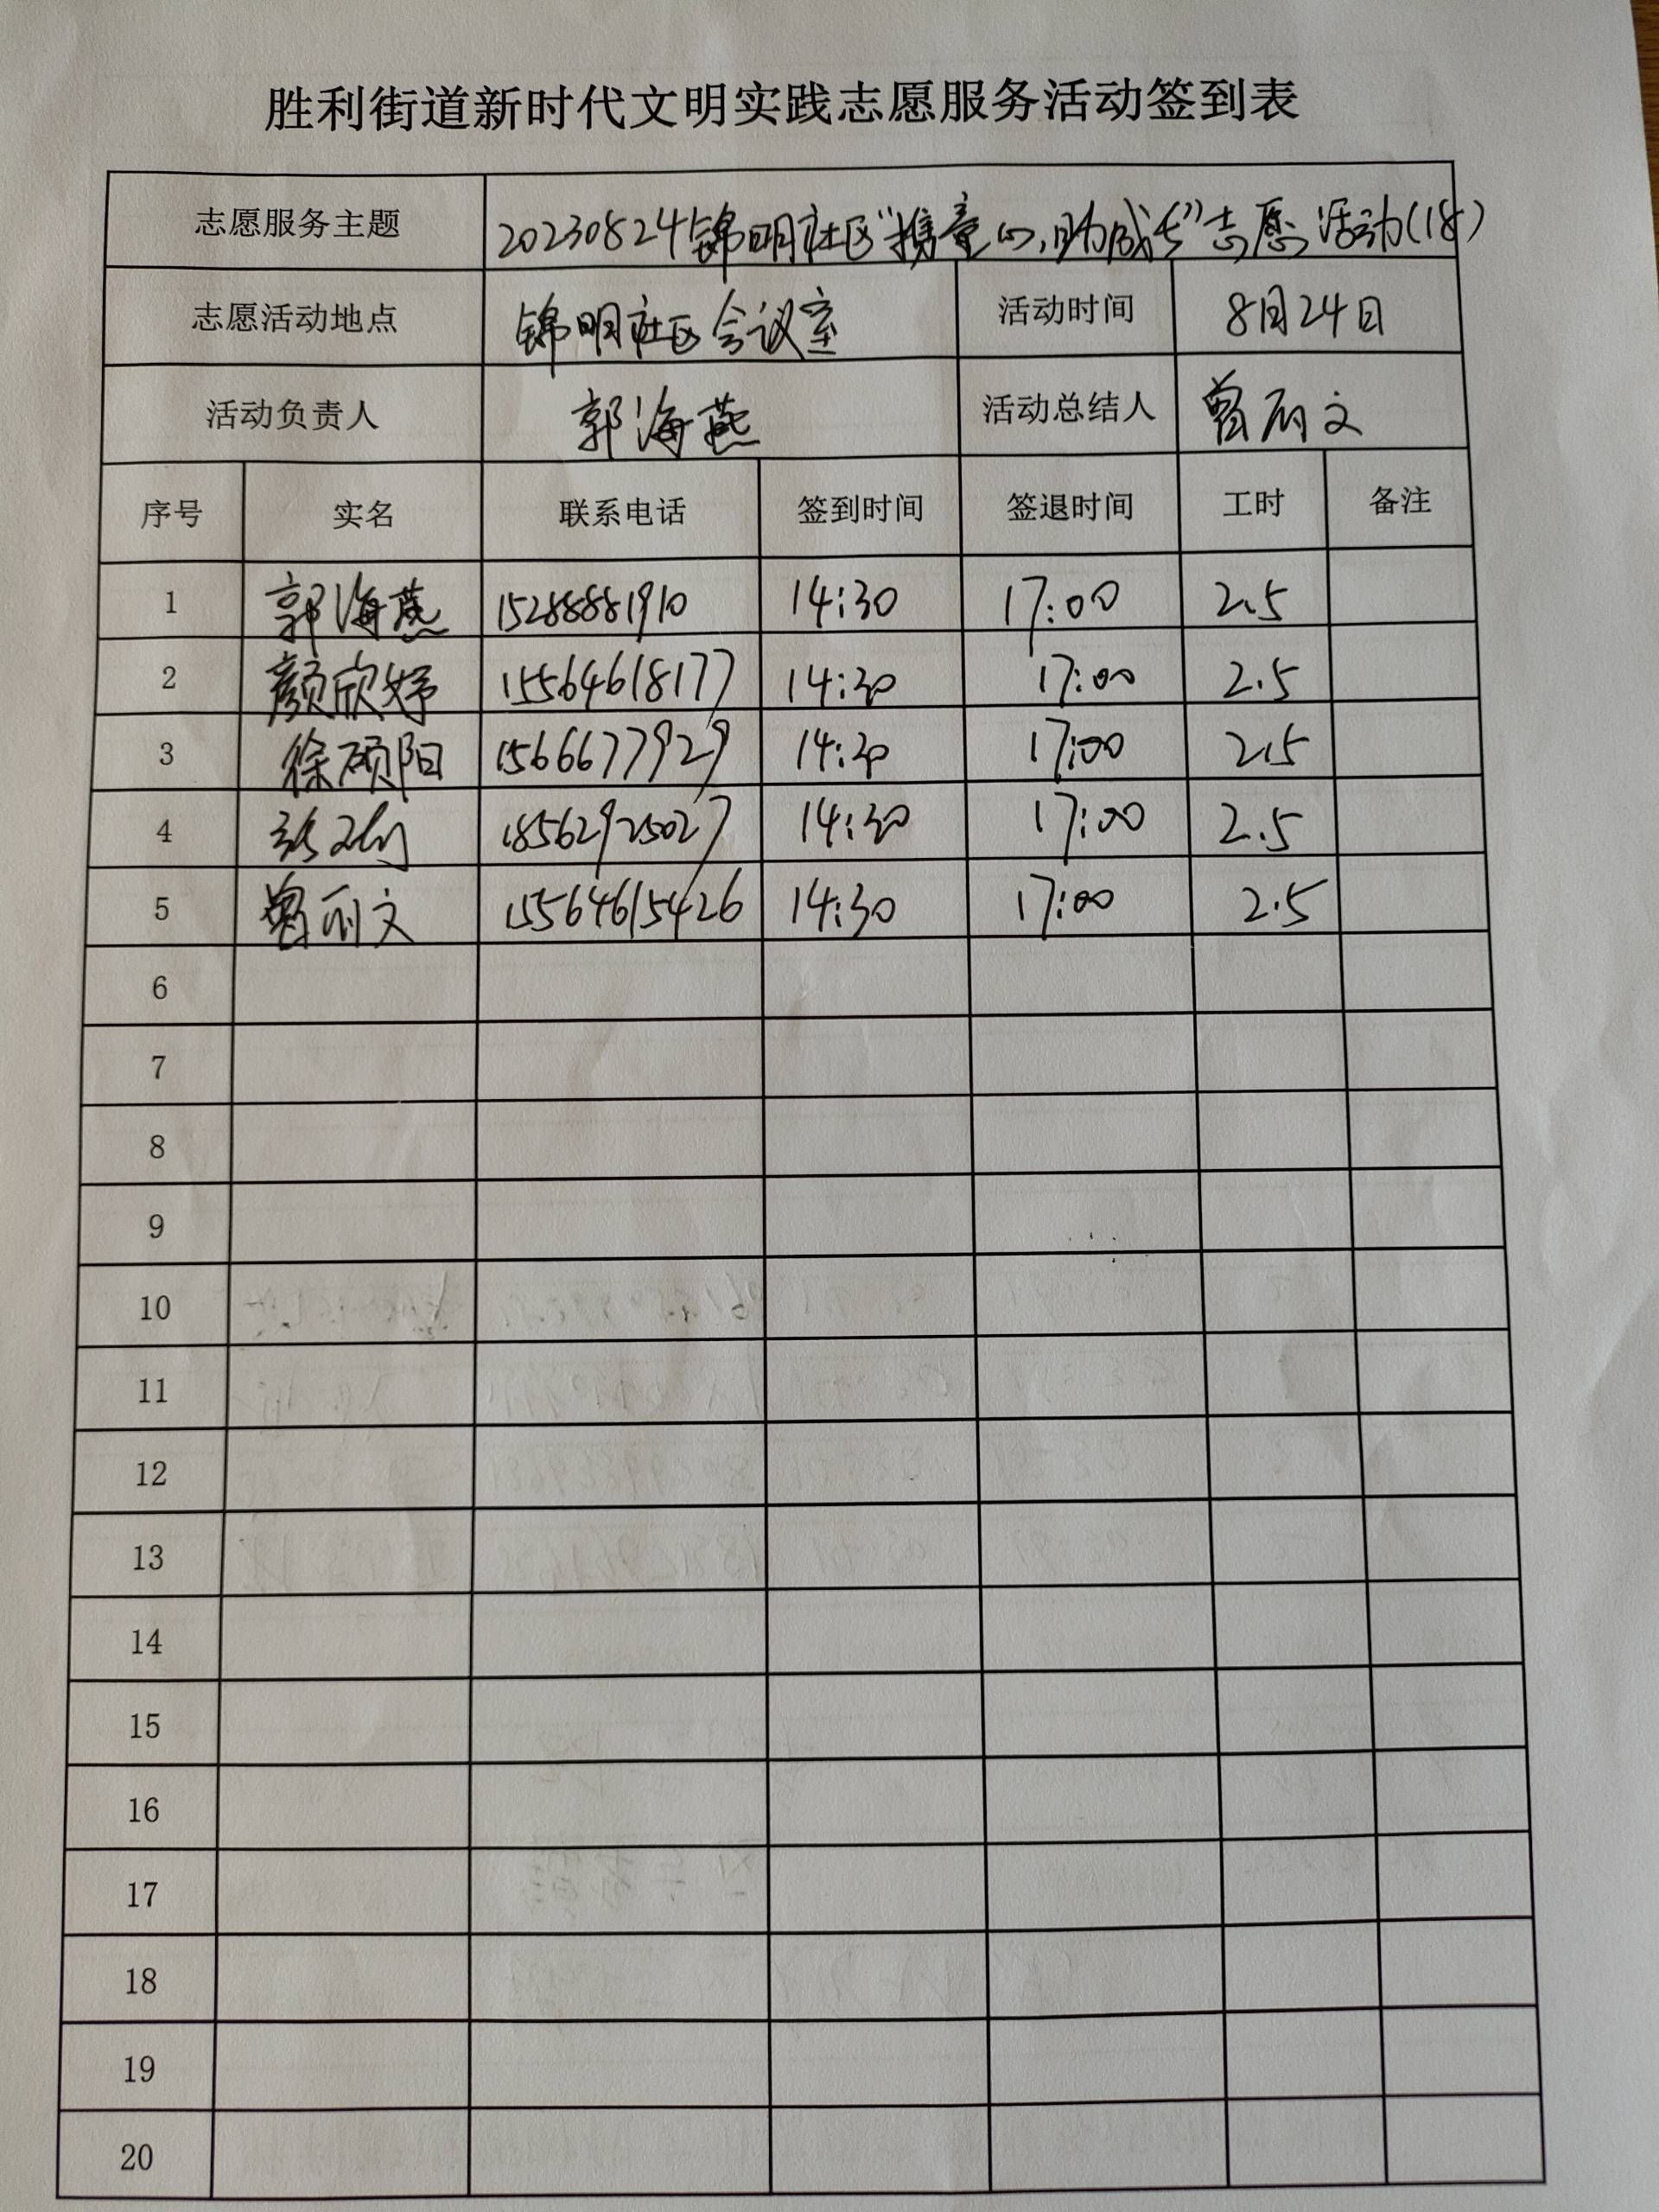 胜利街道新时代文明实践志愿服务活动签到表
志愿服务主题 20230824锦明社区"携童心,助成长"志愿活动(18)
志愿活动地点 锦明社区会议室 活动时间 8月24日
活动负责人 郭海燕 活动总结人 曾丽文
序号 实名 联系电话 签到时间 签退时间 工时 备注
1 郭海燕 15288881910 14:30 17:00 2.5
2 颜欣婷 15564618177 14:30 17:00 2.5
3 徐硕阳 15666777929 14:30 17:00 2.5
4 18562925027 14:30 17:00 2.5
5 曾丽文 15564615426 14:30 17:00 2.5
6
7
8
9
10
11
12
13
14
15
16
17
18
19
20